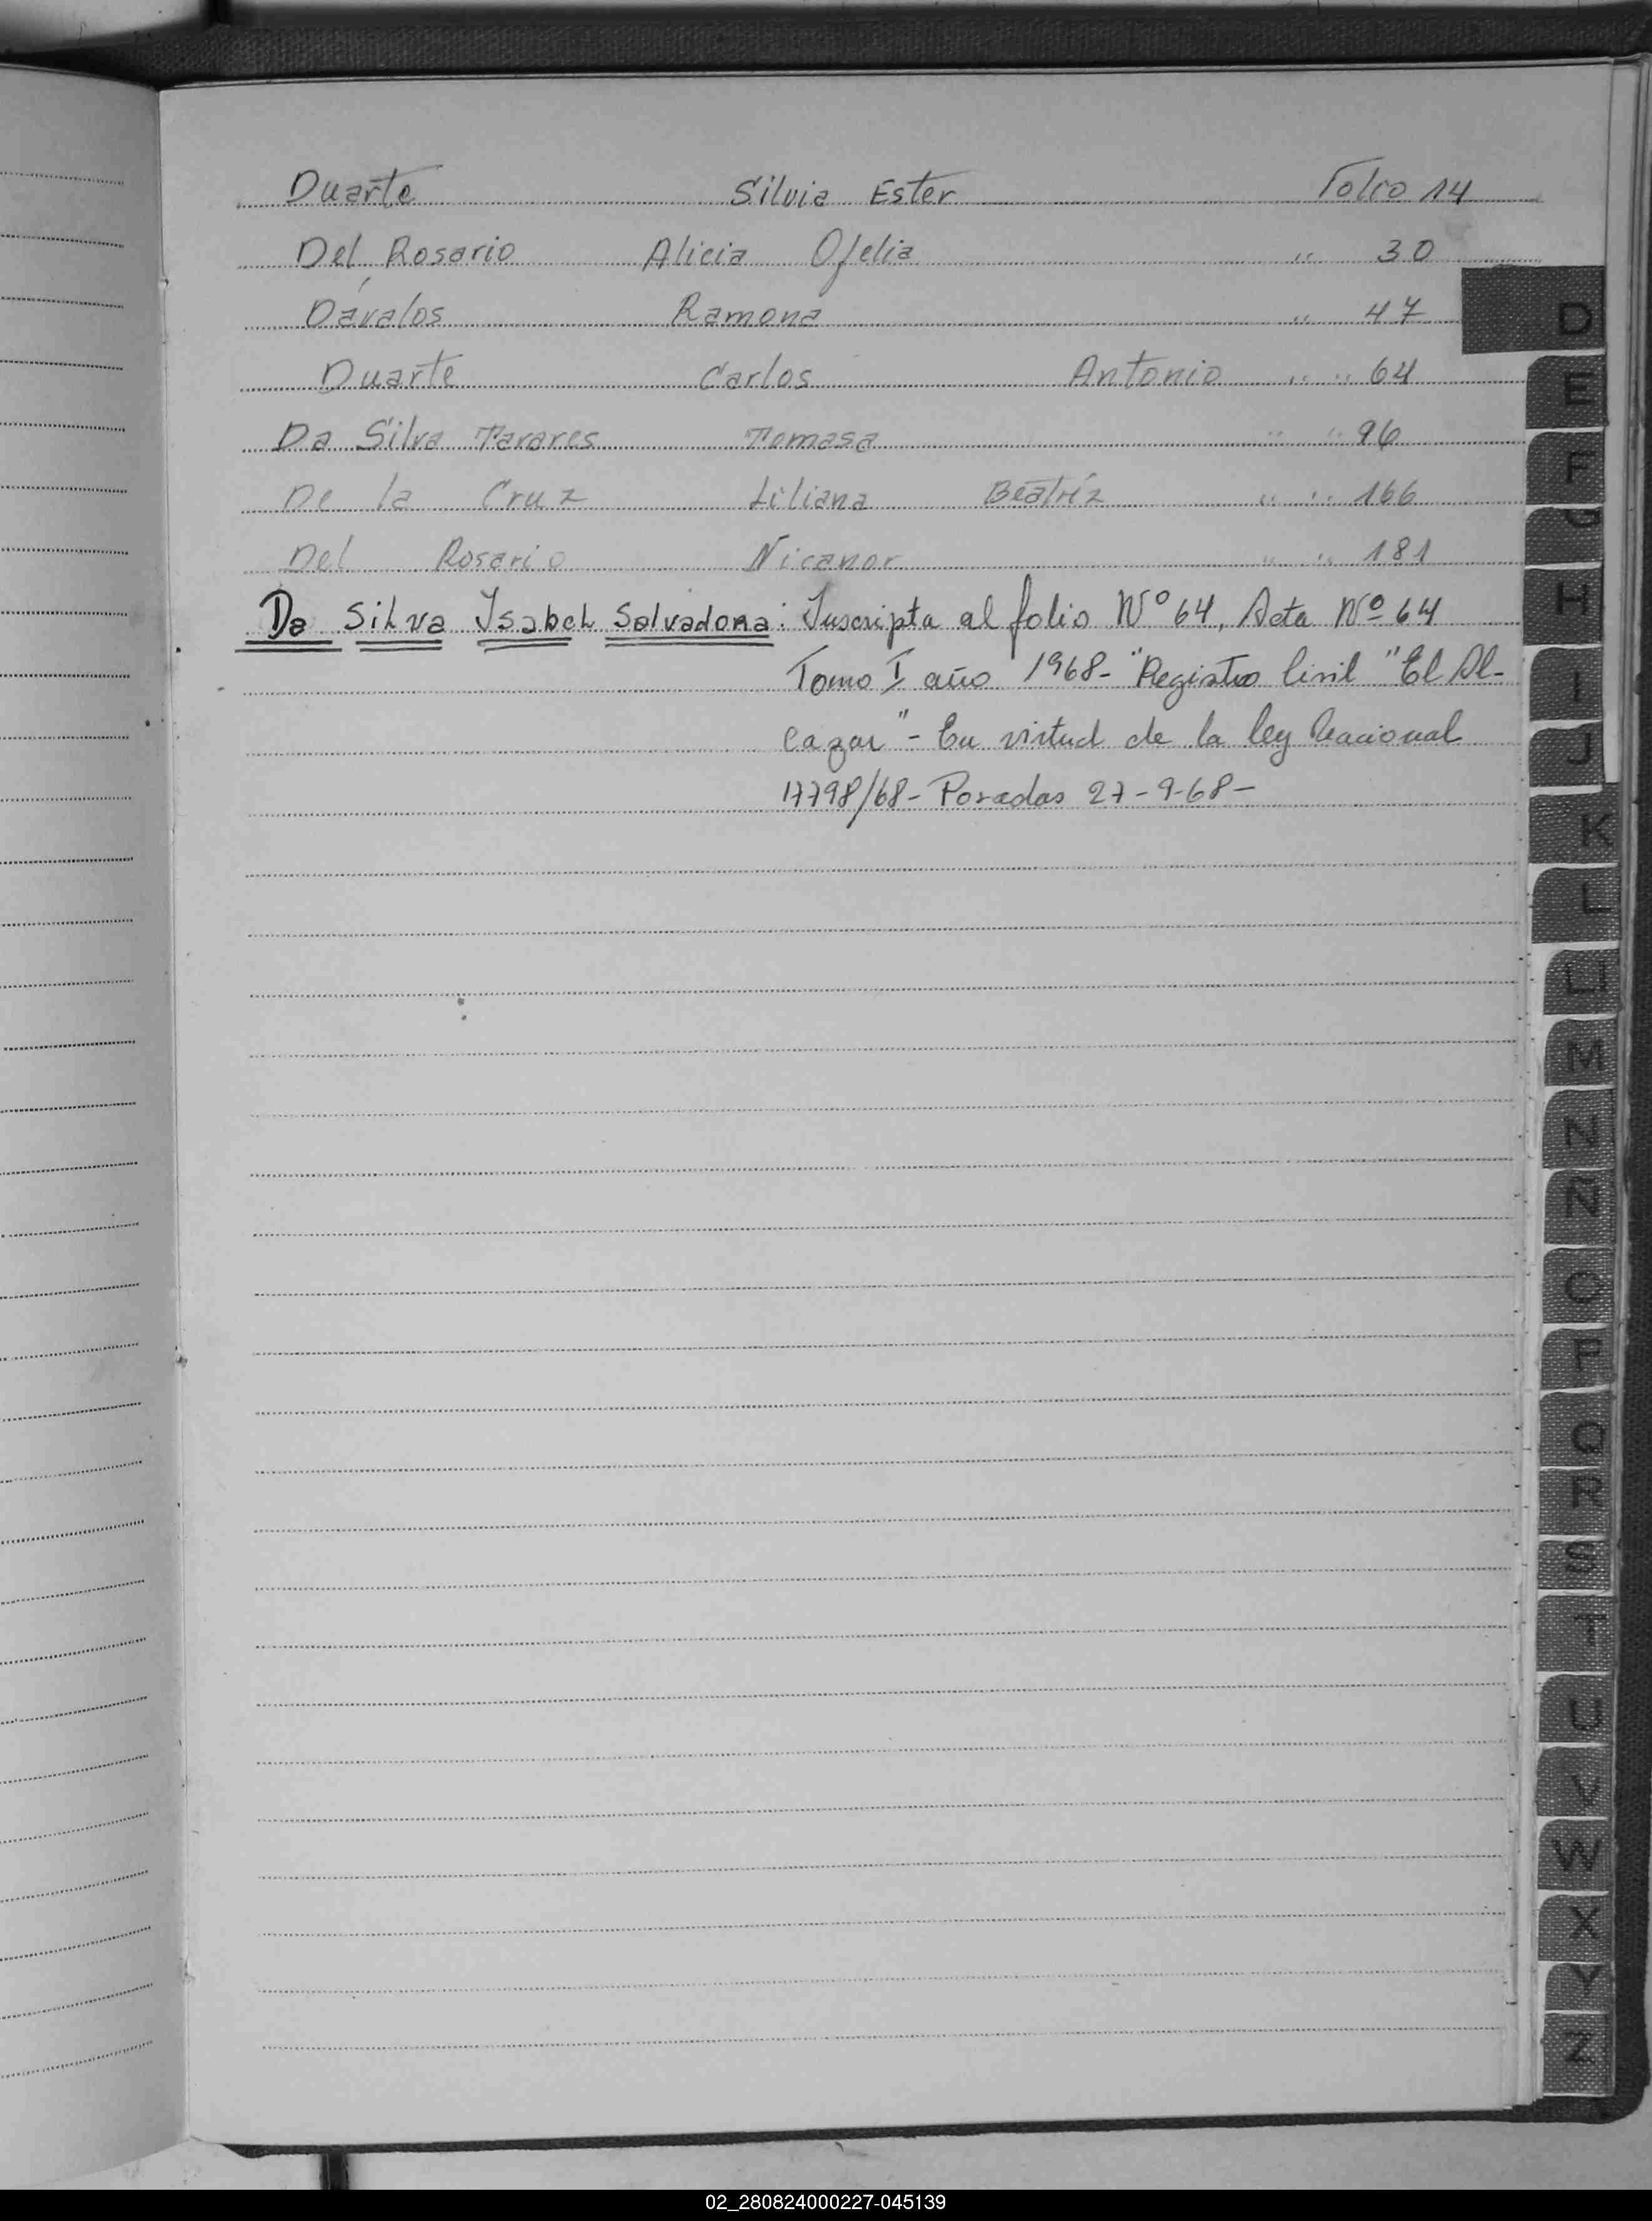 Duarte Silvia Ester Folio 14
Del Rosario Alicia Ofelia " 30
Dávalos Ramona " 47
Duarte Carlos Antonio " " 64
Da Silva Tavares Tomasa " " 96
De la Cruz Liliana Beatríz " " 166
Del Rosario Nicanor " " 181
Da Silva Isabel Salvadora: Inscripta al folio Nº 64, Acta Nº 64
Tomo I año 1968- "Registro Civil "El Al-
cazar" - En virtud de la ley Nacional
17798/68- Posadas 27-9-68-
D
E
F
G
H
I
J
K
L
LL
M
N
Ñ
O
P
Q
R
S
T
U
V
W
X
Y
Z
02_280824000227-045139